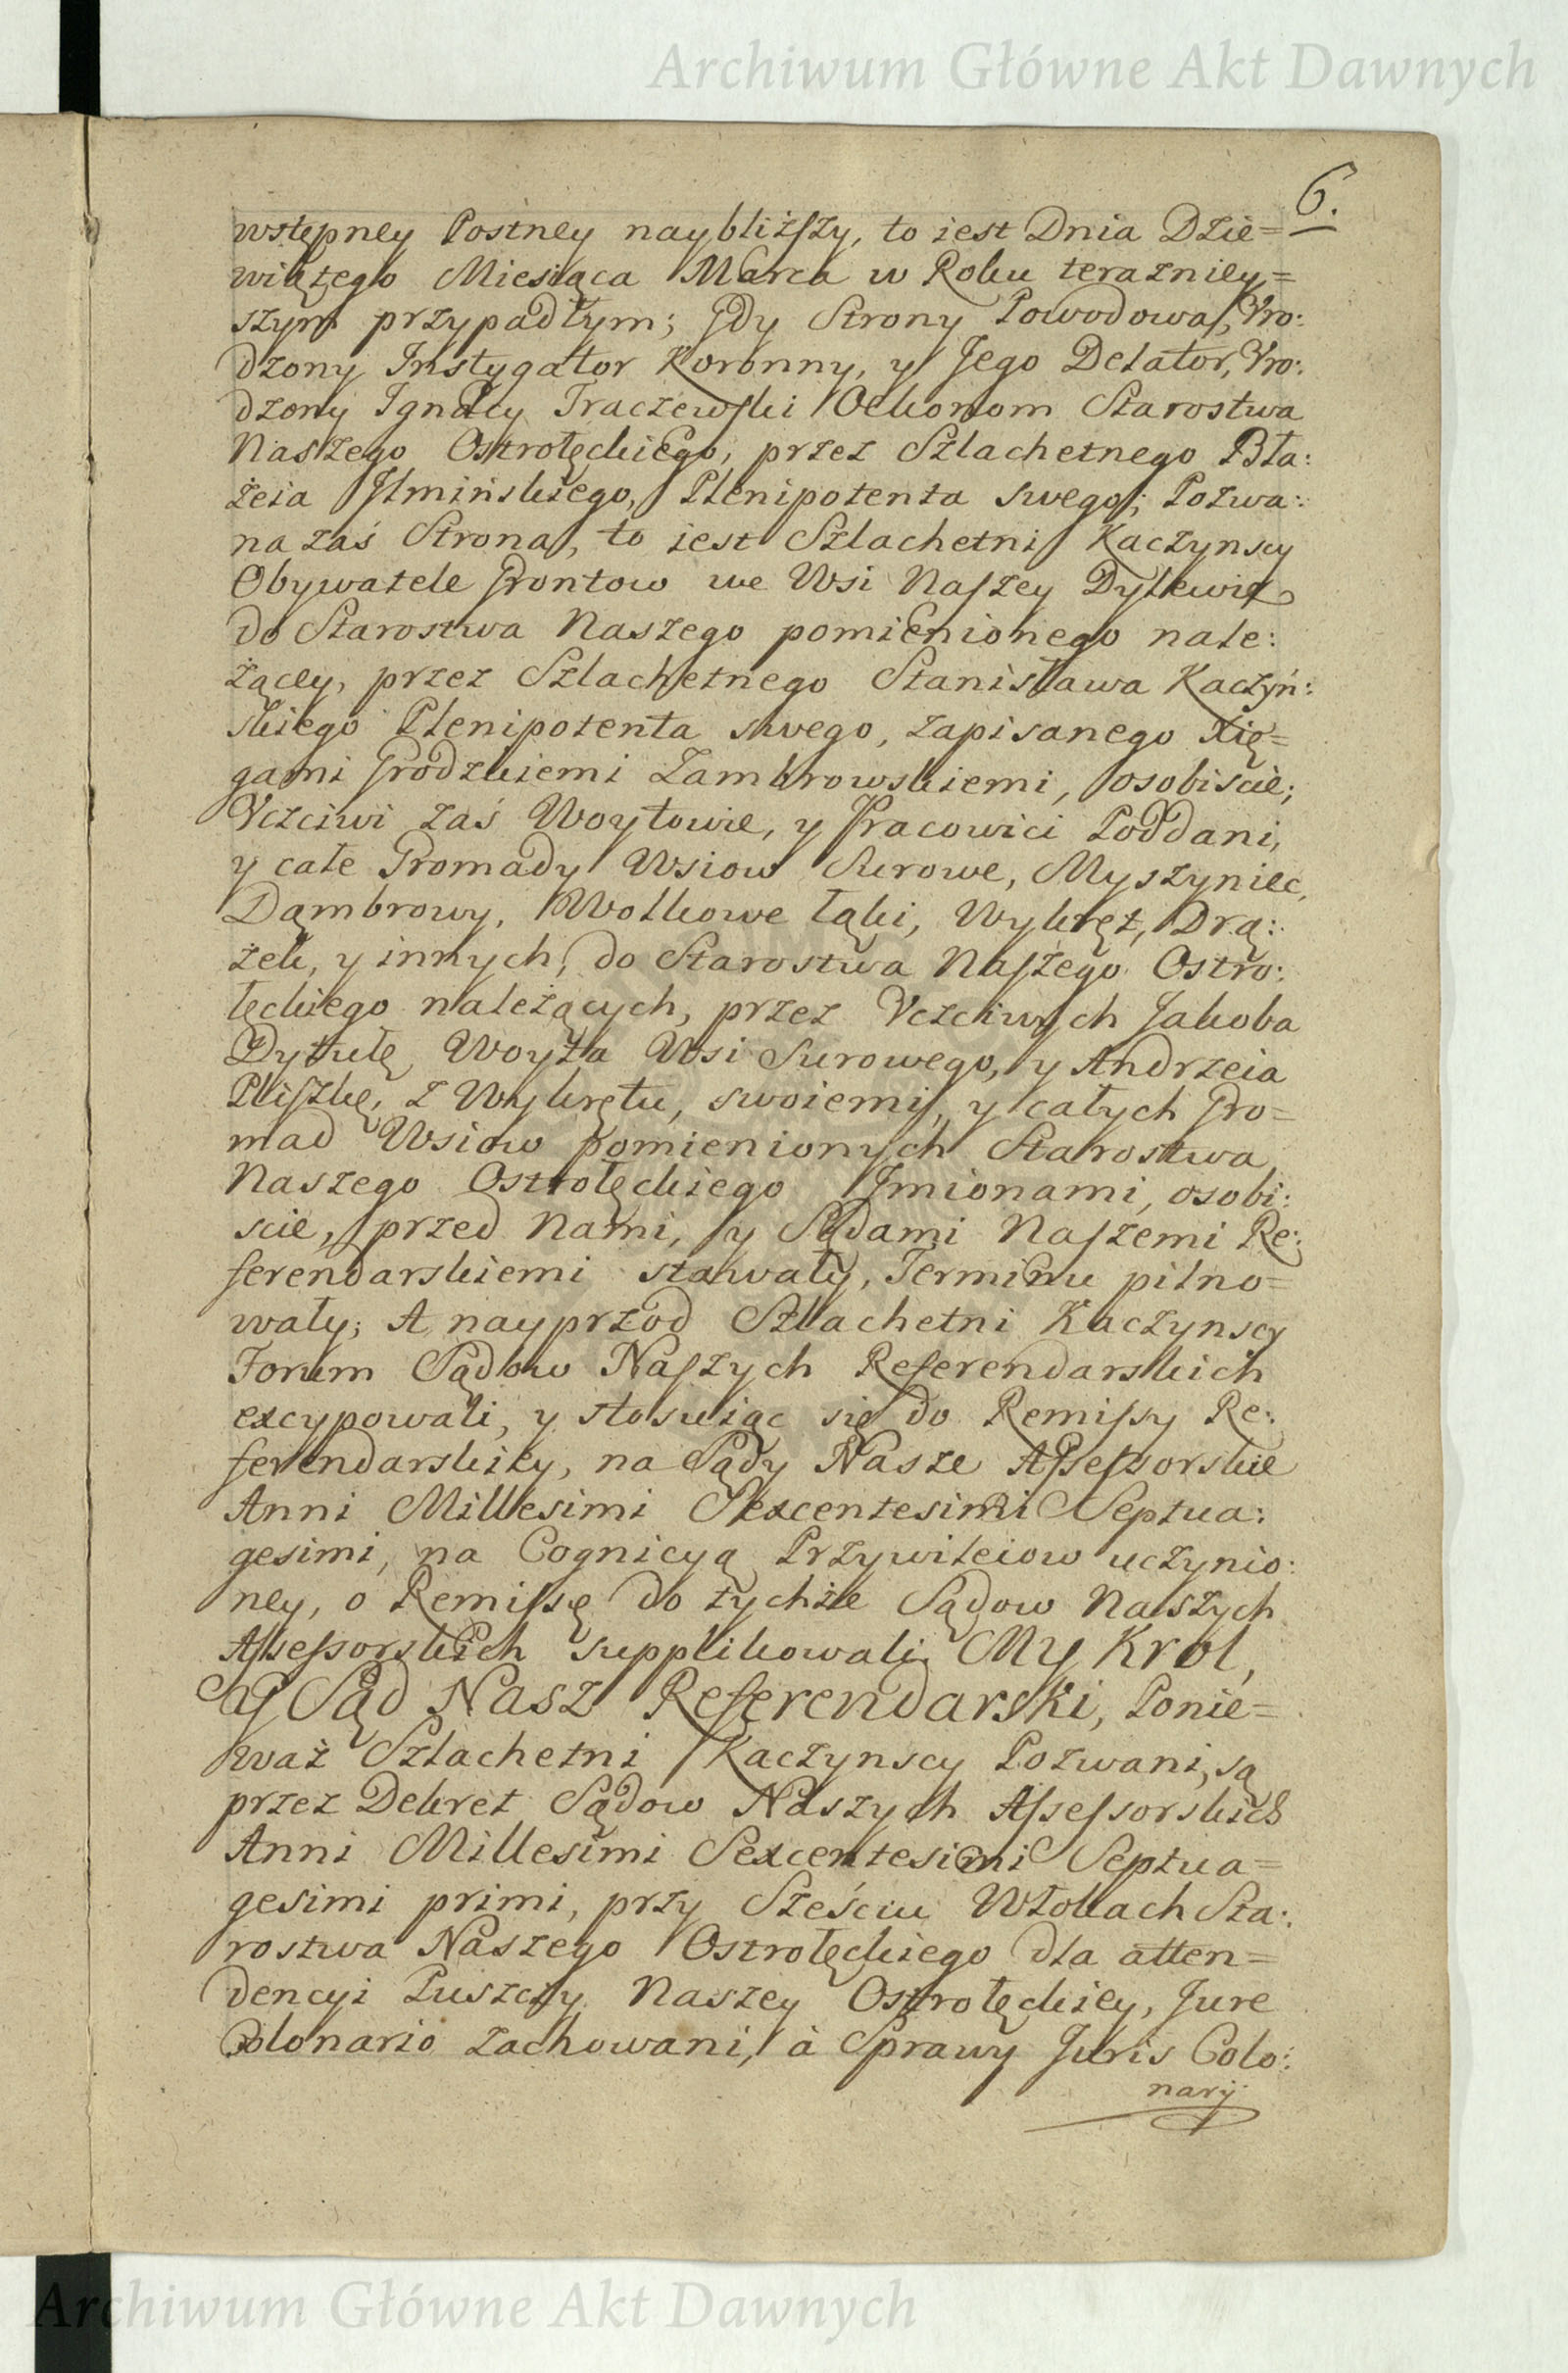 Archiwum Główne Akt Dawnych
6.
wstępney Postney naybliższy, to iest Dnia Dzie=
wiątego Miesiąca Marca w Roku terazniey=
szym przypadłym; Gdy Strony Powodowa, Uro:
dzony Instygator Koronny, y Jego Delator, Uro:
dzony Ignacy Traczewski Oekonom Starostwa
Naszego Ostrołęckiego, przez Szlachetnego Bła:
żeia Jłmińskiego, Plenipotenta swego; Pozwa:
na zaś Strona, to iest Szlachetni Kaczynscy
Obywatele Grontow we Wsi Naszey Dylewie
do Starostwa Naszego pomienionego nale:
żącey, przez Szlachetnego Stanisława Kaczyń:
skiego Plenipotenta swego, zapisanego Xię=
gami Grodzkiemi Zambrowskiemi, osobiscie;
Uczciwi zaś Woytowie, y Pracowici Poddani,
y całe Gromady Wsiow Surowe, Myszyniec,
Dąmbrowy, Wolkowe Łąki, Wykręt, Drą:
żek, y innych, do Starostwa Naszego Ostro:
łęckiego należących, przez Uczciwych Jakoba
Dytułę, Woyta Wsi Surowego, y Andrzeia
Pliszkę, z Wykrętu, swoiemi, y całych Gro=
mad Wsiow pomienionych Starostwa
Naszego Ostrołęckiego Jmionami, osobi:
scie, przed Nami, y Sądami Naszemi Re:
ferendarskiemi stawały, Terminu pilno=
wały; A nayprzod Szlachetni Kaczynscy
Forum Sądow Naszych Referendarskich
excypowali, y stosuiąc się do Remissy Re:
ferendarskiey, na Sądy Nasze Assessorskie
Anni Millesimi Sexcentesimi Septua:
gesimi, na Cognicyą Przywileiow uczynio:
ney, o Remissę do tychże Sądow Naszych
Assessorskich supplikowali. My Krol,
y Sąd Nasz Referendarski, Ponie=
waż Szlachetni Kaczynscy Pozwani, są
przez Dekret Sądow Naszych Assessorskich
Anni Millesimi Sexcentesimi Septua=
gesimi primi, przy Sześciu Włokach Sta:
rostwa Naszego Ostrołęckiego dla atten=
dencyi Puszczy Naszey Ostrołęckiey, Jure
Colonario zachowani, à Sprawy Juris Colo:
narij
Archiwum Główne Akt Dawnych